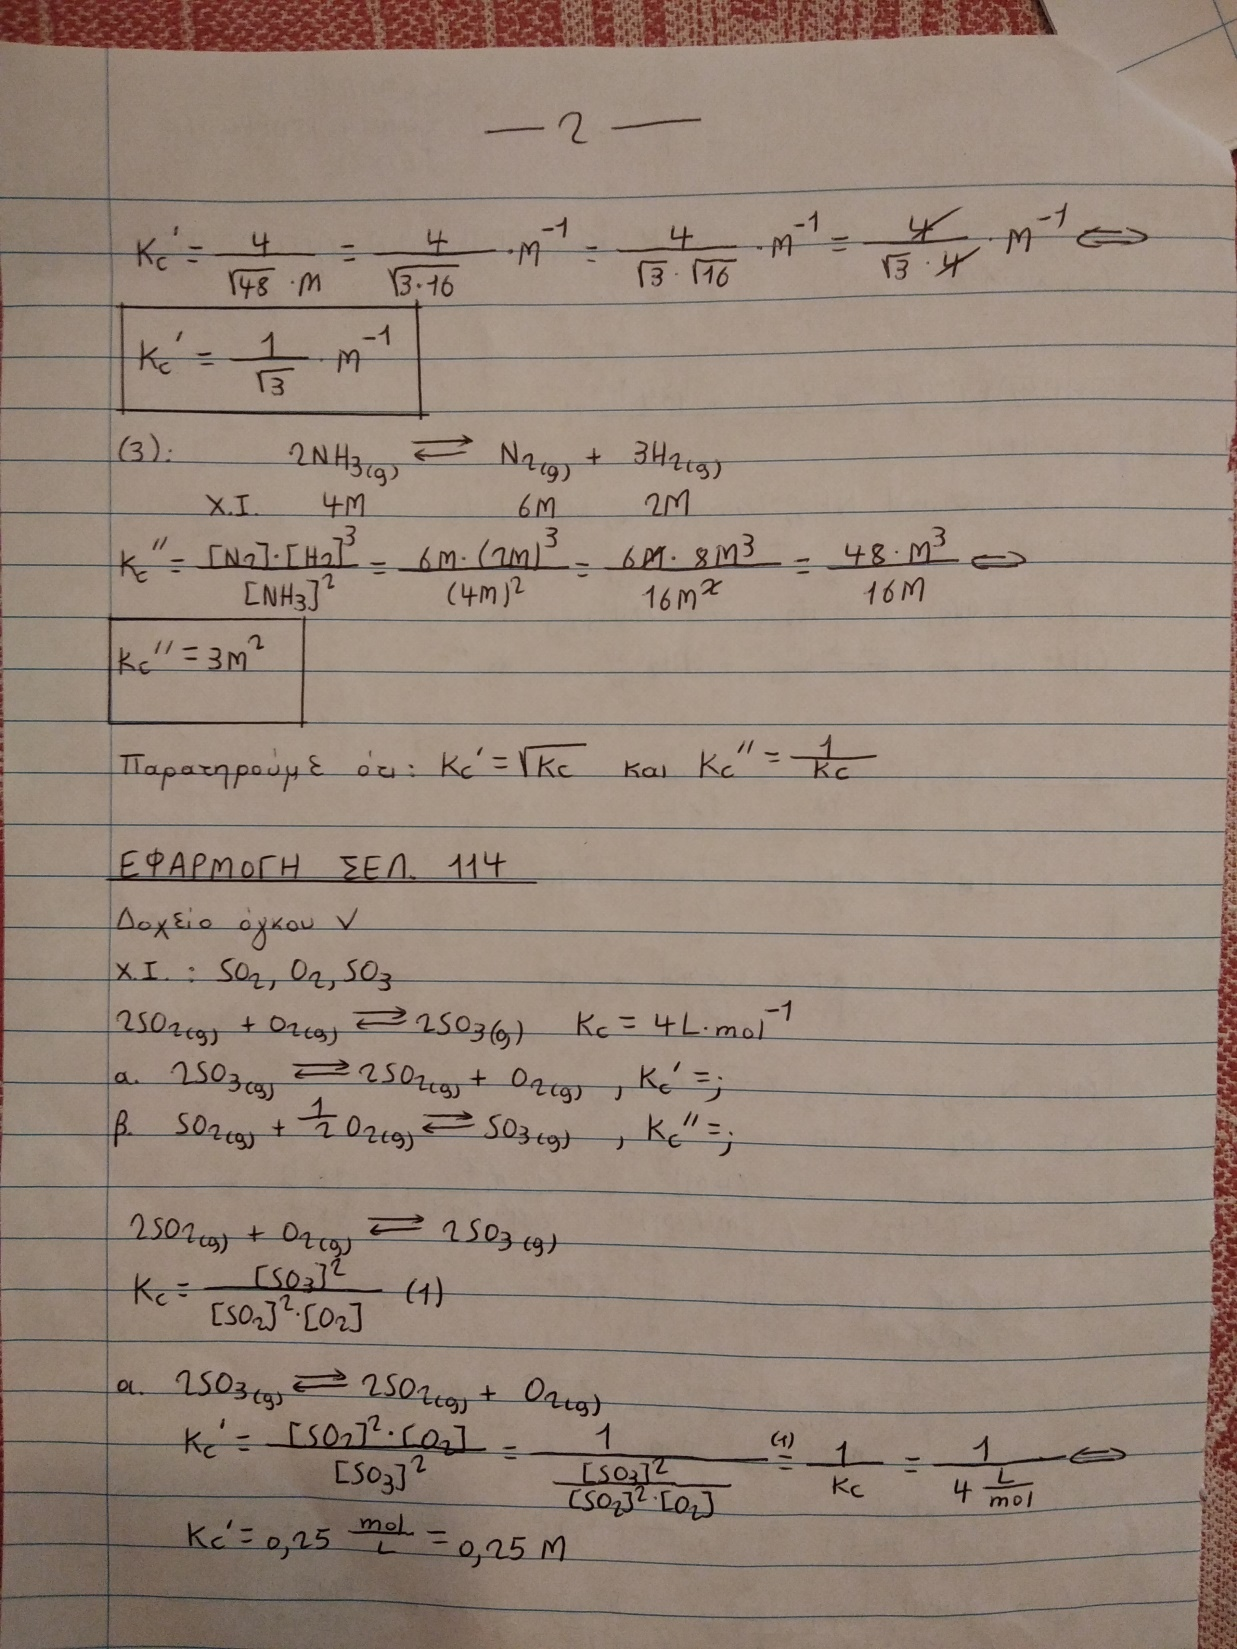 — 2 —
Kc' = 4/(√48 · M) = 4/√(3·16) · M⁻¹ = 4/(√3 · √16) · M⁻¹ = 4/(√3 · 4) · M⁻¹ ⇔
Kc' = 1/√3 · M⁻¹
(3): 2NH₃(g) ⇌ N₂(g) + 3H₂(g)
Χ.Ι. 4M 6M 2M
Kc'' = [N₂]·[H₂]³/[NH₃]² = 6M·(2M)³/(4M)² = 6M · 8M³/16M² = 48 · M³/16M ⇔
Kc'' = 3M²
Παρατηρούμε ότι: Kc' = √Kc και Kc'' = 1/Kc
ΕΦΑΡΜΟΓΗ ΣΕΛ. 114
Δοχείο όγκου V
Χ.Ι. : SO₂, O₂, SO₃
2SO₂(g) + O₂(g) ⇌ 2SO₃(g) Kc = 4 L·mol⁻¹
α. 2SO₃(g) ⇌ 2SO₂(g) + O₂(g) , Kc' = ;
β. SO₂(g) + 1/2 O₂(g) ⇌ SO₃(g) , Kc'' = ;
2SO₂(g) + O₂(g) ⇌ 2SO₃(g)
Kc = [SO₃]²/([SO₂]²·[O₂]) (1)
α. 2SO₃(g) ⇌ 2SO₂(g) + O₂(g)
Kc' = [SO₂]²·[O₂]/[SO₃]² = 1/([SO₃]²/([SO₂]²·[O₂])) =⁽¹⁾ 1/Kc = 1/(4 L/mol) ⇔
Kc' = 0,25 mol/L = 0,25 M